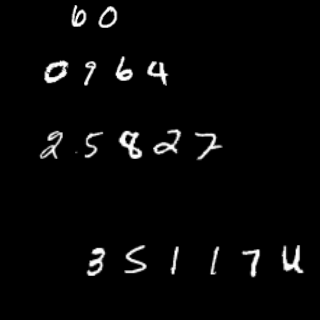 60
0964
25827
351174